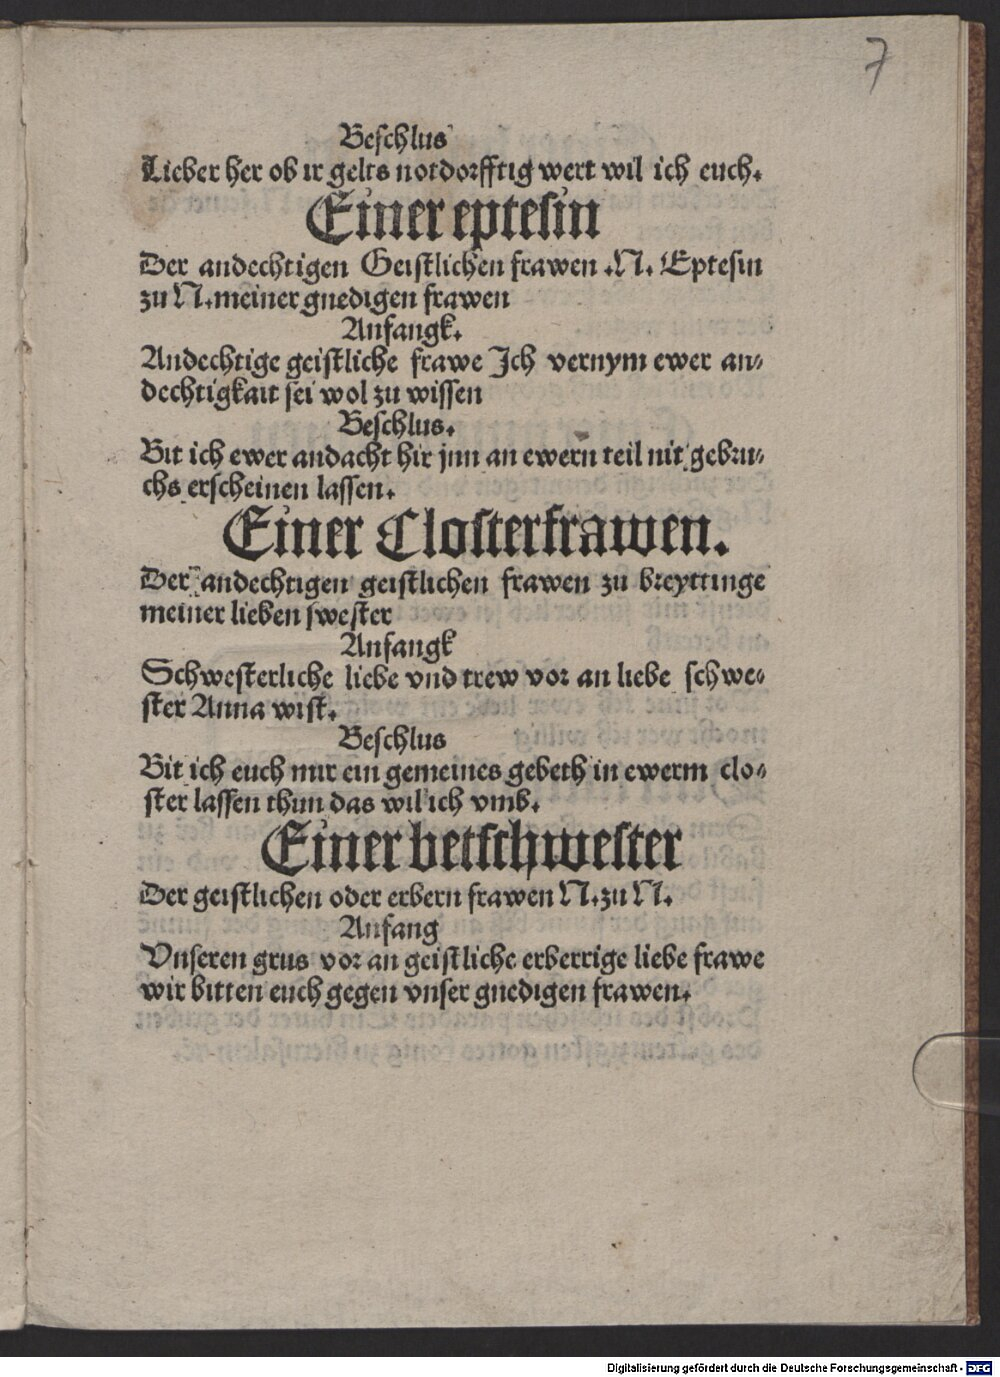 7
Beſchlus
Lieber her ob ir gelts notdorfftig wert wil ich euch.
Einer eptesin
Der andechtigen Geiſtlichen frawen .N. Epteſin
zu N. meiner gnedigen frawen
Anfangk.
Andechtige geiſtliche frawe Ich vernym ewer an⸗
dechtigkait ſei wol zu wiſſen
Beſchlus.
Bit ich ewer andacht hir jnn an ewern teil nit gebru⸗
chs erſcheinen laſſen.
Einer Cloſterfrawen.
Der andechtigen geiſtlichen frawen zu breyttinge
meiner lieben ſweſter
Anfangk
Schweſterliche liebe vnd trew vor an liebe ſchwe⸗
ſter Anna wiſt.
Beſchlus
Bit ich euch mir ein gemeines gebeth in ewerm clo⸗
ſter laſſen thun das wil ich vmb.
Einer betſchweſter
Der geiſtlichen oder erbern frawen N. zu N.
Anfang
Vnſeren grus vor an geiſtliche erberrige liebe frawe
wir bitten euch gegen vnſer gnedigen frawen.
Digitalisierung gefördert durch die Deutsche Forschungsgemeinschaft - DFG